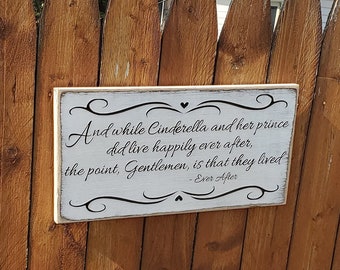 And while Cinderella and her prince
did live happily ever after,
the point, Gentlemen, is that they lived
- Ever After